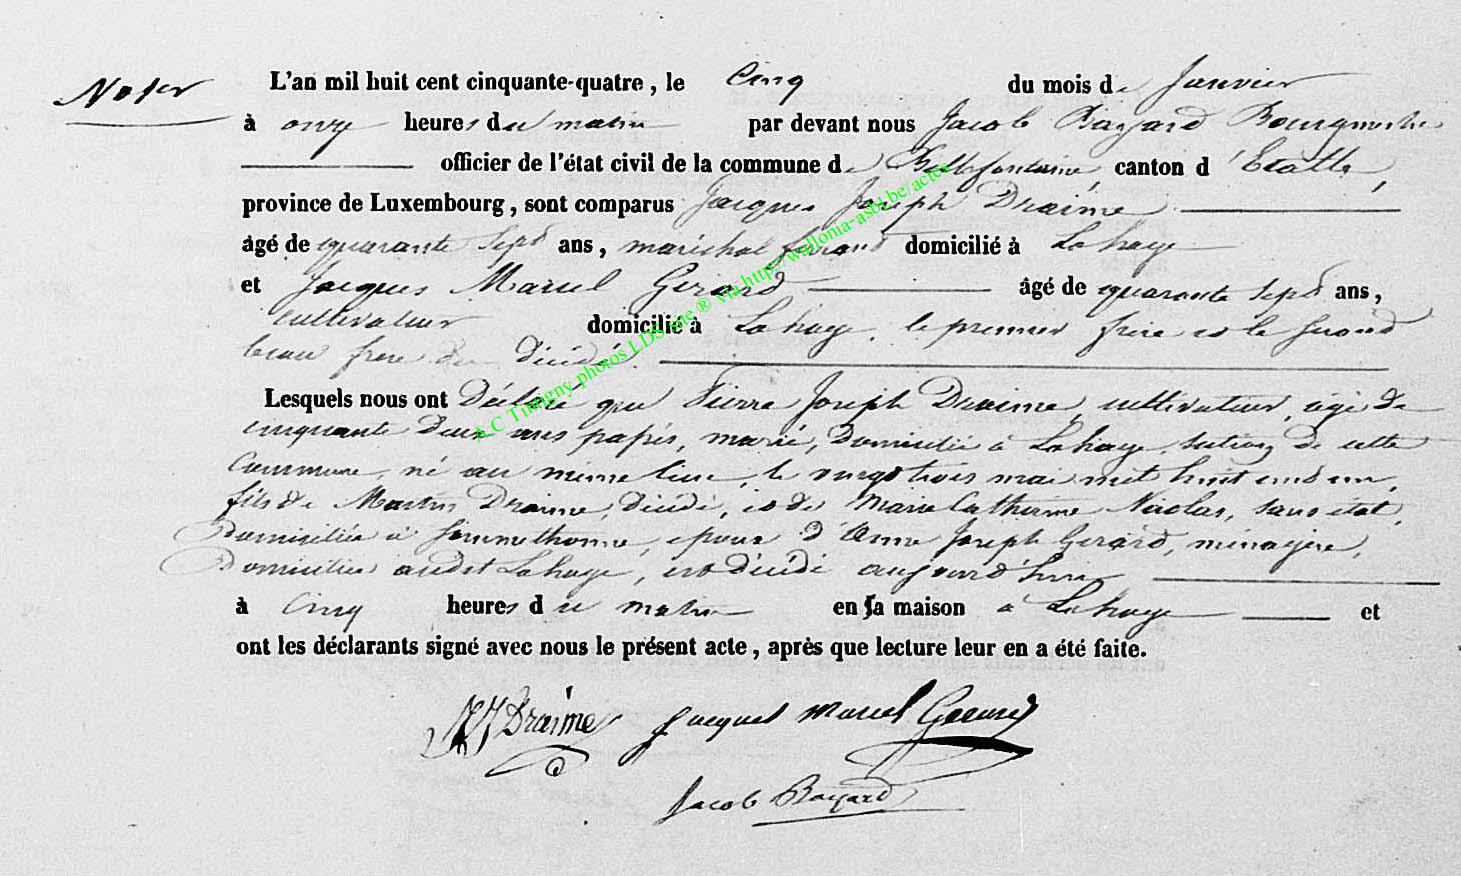 Noter
L'an mil huit cent cinquante-quatre, le Cinq du mois de Janvier
à onze heures du matin par devant nous Jacob Bayard Bourgmestre
officier de l'état civil de la commune de Bellefontaine, canton d'Etalle,
province de Luxembourg, sont comparus Jacques Joseph Draime
âgé de quarante sept ans, maréchal ferrand domicilié à Lahage
et Jacques Marcel Gerard âgé de quarante sept ans,
cultivateur domicilié à Lahage, le premier frère et le second
beau frere du décédé.
Lesquels nous ont Déclaré que Pierre Joseph Draime, cultivateur, âgé de
cinquante deux ans passés, marié, Domicilié à Lahage, section de cette
Commune, né au même lieu, le vingt trois mai mil huit cent un,
fils de Martin Draime, décédé, et de Marie Catherine Nicolas, sans état,
Domiciliée à Sommethonne, epoux d'Anne Joseph Gerard, ménagère,
Domiciliée audit Lahage, est décédé aujourd'hui
à Cinq heures du matin en sa maison à Lahage et
ont les déclarants signé avec nous le présent acte, après que lecture leur en a été faite.
JJ Draime Jacques Marcel Gerard
Jacob Bayard
A C Tintigny photos LDS site ® via http://wallonia-asbl.be/actes